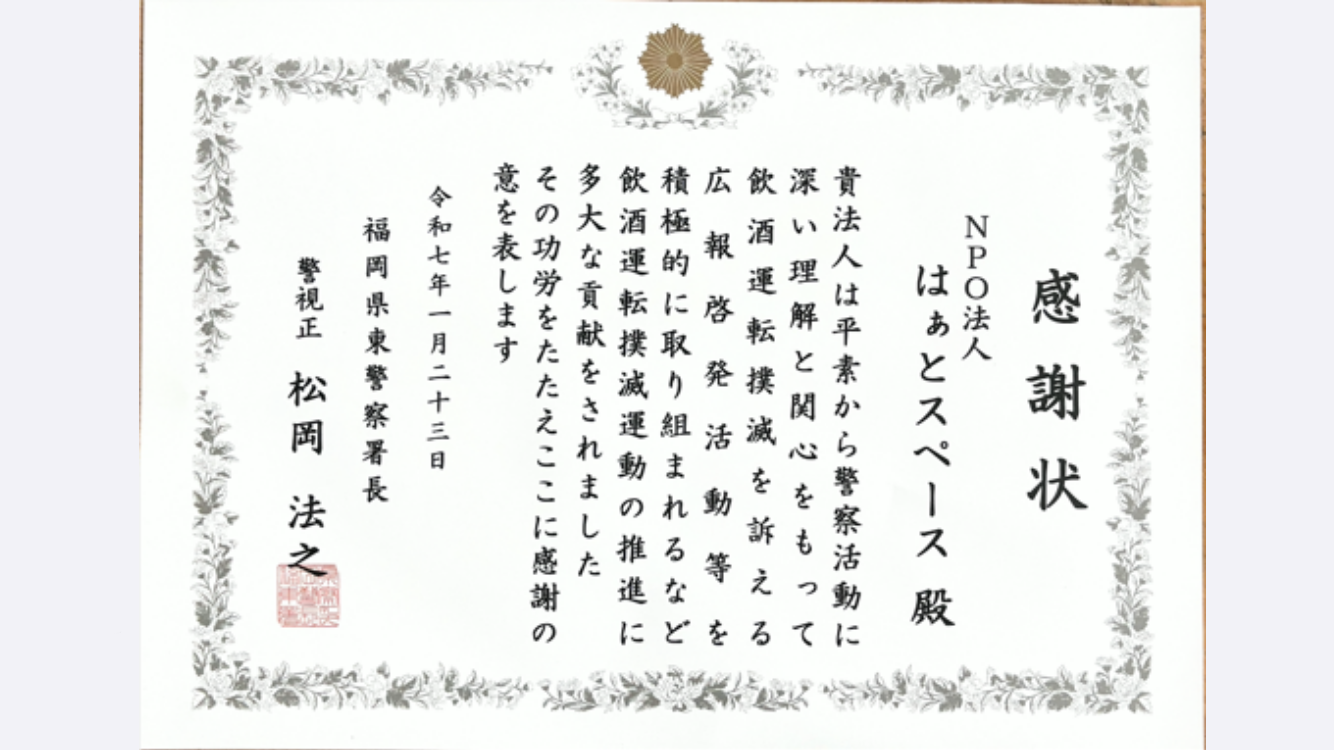 感謝状
NPO法人
はぁとスペース 殿
貴法人は平素から警察活動に
深い理解と関心をもって
飲酒運転撲滅を訴える
広報啓発活動等を
積極的に取り組まれるなど
飲酒運転撲滅運動の推進に
多大な貢献をされました
その功労をたたえここに感謝の
意を表します
令和七年一月二十三日
福岡県東警察署長
警視正 松岡 法之